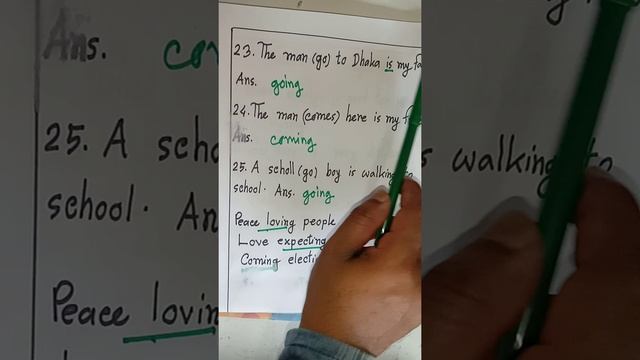 23. The man (go) to Dhaka is my fa
Ans. going
24. The man (comes) here is my f
Ans. coming
25. A scholl (go) boy is walking to
school. Ans. going
Peace loving people
Love expecting
Coming electi